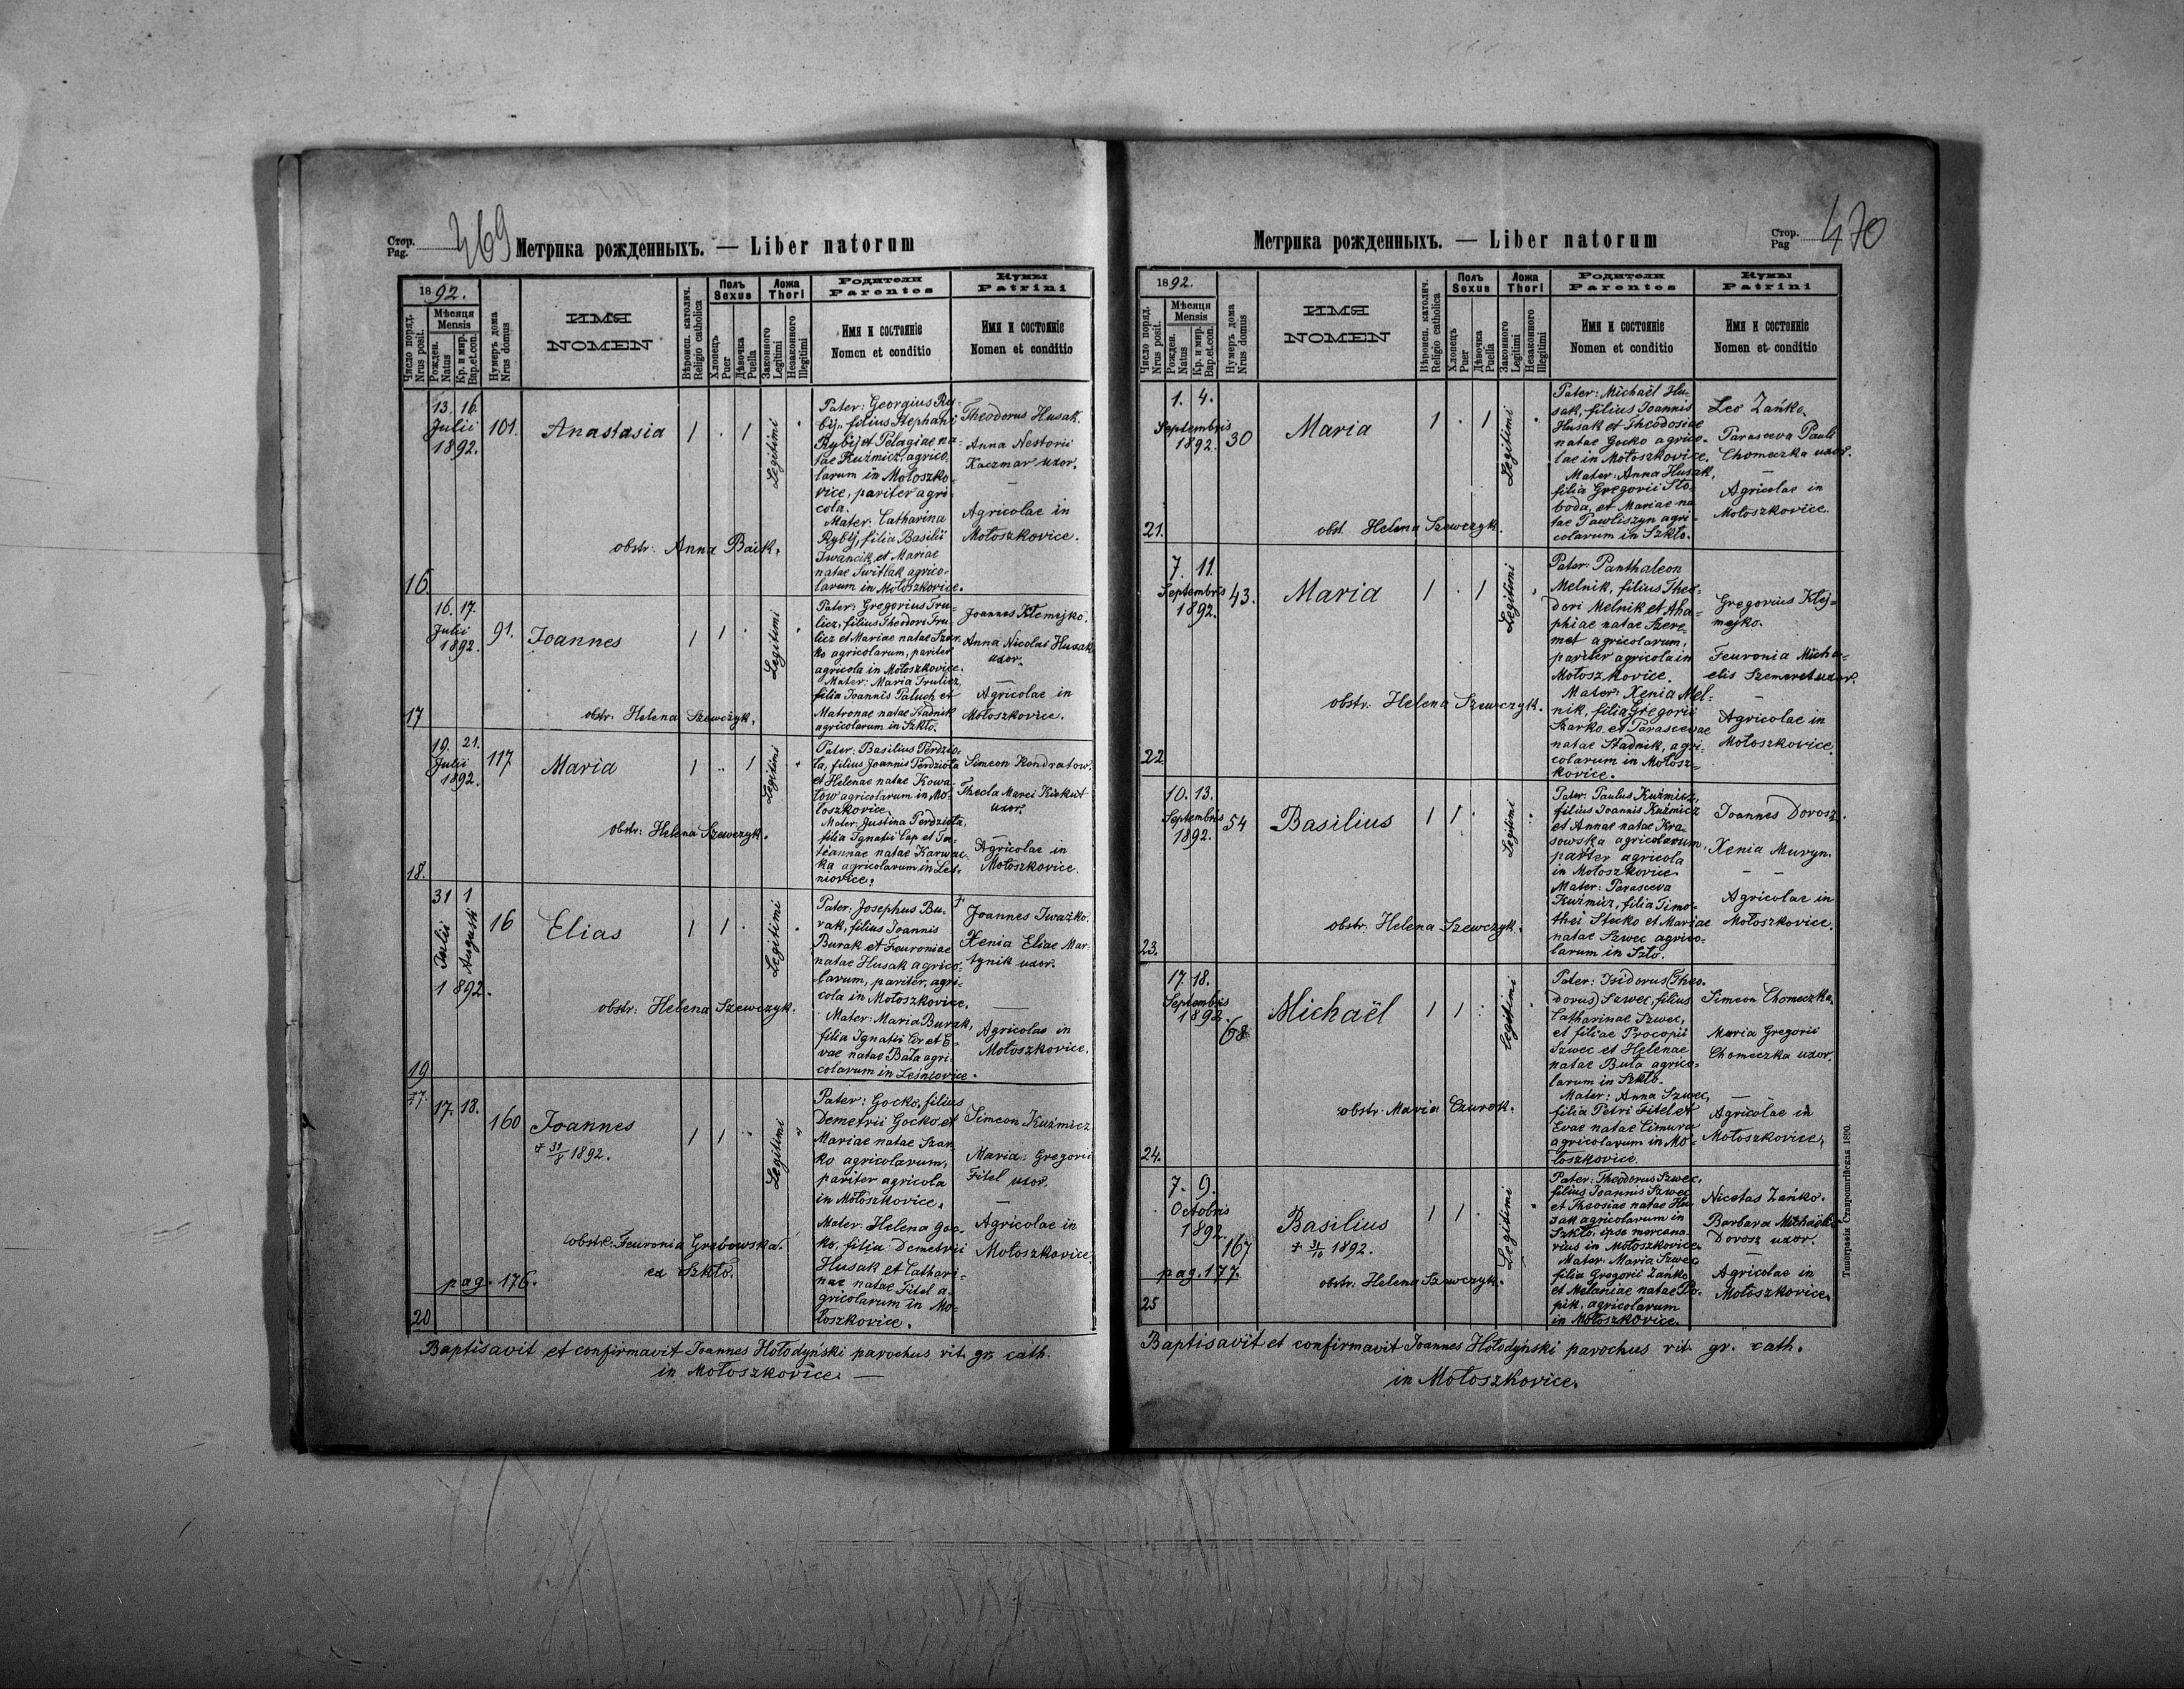 Стор.
Pag. 469
Метрика рожденныхъ. — Liber natorum
1892.
Число поряд.
Nrus posit.
Мѣсяця
Mensis
Рожден.
Natus
Кр. и мир.
Bap.et.con.
Нумеръ дома
Nrus domus
ИМЯ
NOMEN
Вѣроисп. католич.
Religio catholica
Полъ
Sexus
Хлопецъ
Puer
Дѣвочка
Puella
Ложа
Thori
Законного
Legitimi
Незаконного
Illegitimi
Родители
Parentes
Имя и состоянie
Nomen et conditio
Кумы
Patrini
Имя и состоянie
Nomen et conditio
16
13. 16.
Julii
1892.
101.
Anastasia
1 . 1
Legitimi
obstr. Anna Baick.
Pater: Georgius Ry-
bij, filius Stephani
Rybij et Pelagiae na-
tae Kuźmicz, agrico-
larum in Mołoszko-
vice, pariter agri-
cola.
Mater: Catharina
Rybij, filia Basilii
Iwancik et Mariae
natae Switlak agrico-
larum in Mołoszkovice.
Theodorus Husak.
Anna Nestorii
Kaczmar uxor.
—
Agricolae in
Mołoszkovice.
17
16. 17.
Julii
1892.
91.
Joannes
1 1 .
Legitimi
obstr. Helena Szewczyk.
Pater: Gregorius Tru-
licz, filius Theodori Tru-
licz et Mariae natae Szar-
ko agricolarum, pariter
agricola in Mołoszkovice.
Mater: Maria Trulicz,
filia Joannis Paluch et
Matronae natae Stadnik
agricolarum in Szkło.
Joannes Klemejko.
Anna Nicolai Husak
uxor.
—
Agricolae in
Mołoszkovice.
18.
19. 21.
Julii
1892.
117
Maria
1 .. 1
Legitimi
obstr: Helena Szewczyk.
Pater: Basilius Perdzio-
ła, filius Joannis Perdzioła
et Helenae natae Kowa-
low agricolarum in Mo-
łoszkovice.
Mater: Justina Perdzioła,
filia Ignatii Cap et Ta-
teannae natae Karwac-
ka agricolarum in Leś-
niovice.
Simeon Kondratow.
Thecla Marci Kickut
uxor.
—
Agricolae in
Mołoszkovice.
19
31 1
Julii Augusti
1892.
16
Elias
1 1 .
Legitimi
obstr: Helena Szewczyk.
Pater: Josephus Bu-
rak, filius Joannis
Burak et Feuroniae
natae Husak agrico-
larum, pariter, agri-
cola in Mołoszkovice.
Mater: Maria Burak,
filia Ignatii Cir et E-
vae natae Bała agri-
colarum in Leśniovice.
Joannes Iwazko.
Xenia Eliae Mar-
tynik uxor.
—
Agricolae in
Mołoszkovice.
20
17. 18.
160
Joannes
+ 31/8 1892.
1 1
Legitimi
obstr: Feuronia Grabowska
ex Szkło.
pag. 176.
Pater: Gocko, filius
Demetrii Gocko et
Mariae natae Szar-
ko agricolarum,
pariter agricola
in Mołoszkovice.
Mater: Helena Goc-
ko, filia Demetrii
Husak et Cathari-
nae natae Fitel a-
gricolarum in Mo-
łoszkovice.
Simeon Kuźmicz
Maria Gregorii
Fitel uxor.
—
Agricolae in
Mołoszkovice
Baptisavit et confirmavit Joannes Hołodyński parochus rit. gr. cath.
in Mołoszkovice. —
Метрика рожденныхъ. — Liber natorum
Стор.
Pag 470
1892.
Число поряд.
Nrus posit.
Мѣсяця
Mensis
Рожден.
Natus
Кр. и мир.
Bap.et.con.
Нумеръ дома
Nrus domus
ИМЯ
NOMEN
Вѣроисп. католич.
Religio catholica
Полъ
Sexus
Хлопецъ
Puer
Дѣвочка
Puella
Ложа
Thori
Законного
Legitimi
Незаконного
Illegitimi
Родители
Parentes
Имя и состоянie
Nomen et conditio
Кумы
Patrini
Имя и состоянie
Nomen et conditio
21.
1. 4.
Septembris
1892.
30
Maria
1 . 1
Legitimi
obst. Helena Szewczyk.
Pater: Michaël Hu-
sak, filius Joannis
Husak et Theodosiae
natae Gocko agrico-
lae in Mołoszkovice.
Mater: Anna Husak,
filia Gregorii Sło-
boda, et Mariae na-
tae Pawliszyn agri-
colarum in Szkło.
Leo Zańko.
Parasceva Pauli
Chomeczka uxor.
—
Agricolae in
Mołoszkovice.
22
7. 11.
Septembris
1892.
43.
Maria
1 . 1
Legitimi
obstr. Helena Szewczyk.
Pater: Panthaleon
Melnik, filius Theo-
dori Melnik et Aha-
phiae natae Szere-
met agricolarum,
pariter agricola in
Mołoszkovice.
Mater: Xenia Mel-
nik, filia Gregorii
Szarko et Parascevae
natae Stadnik, agri-
colarum in Mołosz-
kovice.
Gregorius Klej-
mejko.
Feuronia Micha-
elis Szemeret uxor.
—
Agricolae in
Mołoszkovice.
23.
10. 13.
Septembris
1892.
54
Basilius
1 1 .
Legitimi
obstr. Helena Szewczyk.
Pater: Paulus Kuźmicz,
filius Joannis Kuźmicz
et Annae natae Kra-
sowska agricolarum,
pariter agricola
in Mołoszkovice.
Mater: Parasceva
Kuźmicz, filia Timo-
thei Stecko et Mariae
natae Szwec agrico-
larum in Szło.
Joannes Dorosz.
Xenia Muryn.
— —
Agricolae in
Mołoszkovice.
24.
17. 18.
Septembris
1892.
68
Michaël
1 1 :
Legitimi
obstr. Maria Czurok.
Pater: Isidorus (Theo-
dorus) Szwec, filius
Catharinae Szwec,
et filiae Procopii
Szwec et Helenae
natae Buła agrico-
larum in Szkło.
Mater: Anna Szwec,
filia Petri Fitel et
Evae natae Cimura
agricolarum in Mo-
łoszkovice.
Simeon Chomeczka.
Maria Gregorii
Chomeczka uxor.
—
Agricolae in
Mołoszkovice.
25
7. 9.
Octobris
1892.
167
Basilius
+ 31/10 1892.
1 1 .
Legitimi
pag. 177.
obstr: Helena Szewczyk.
Pater: Theodorus Szwec,
filius Joannis Szwec
et Theosiae natae Hu-
sak agricolarum in
Szkło, ipse mercena-
rius in Mołoszkovice.
Mater: Maria Szwec
filia Gregorii Zańko
et Melaniae natae Po-
pik, agricolarum
in Mołoszkovice.
Nicetas Zańko.
Barbara Michaëlis
Dorosz uxor.
—
Agricolae in
Mołoszkovice.
Baptisavit et confirmavit Joannes Hołodyński parochus rit. gr. cath.
in Mołoszkovice.
Типографiя Ставропигiйская 1890.